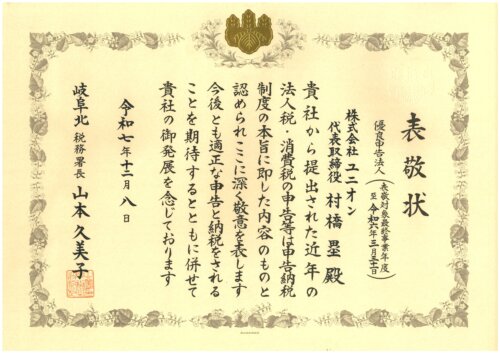 表敬状
優良申告法人(表敬対象最終事業年度 至 令和六年三月三十一日)
株式会社 ユニオン
代表取締役 村橋 塁 殿
貴社から提出された近年の
法人税・消費税の申告等は申告納税
制度の本旨に即した内容のものと
認められここに深く敬意を表します
今後とも適正な申告と納税をされる
ことを期待するとともに併せて
貴社の御発展を念じております
令和七年十二月八日
岐阜北税務署長 山本久美子